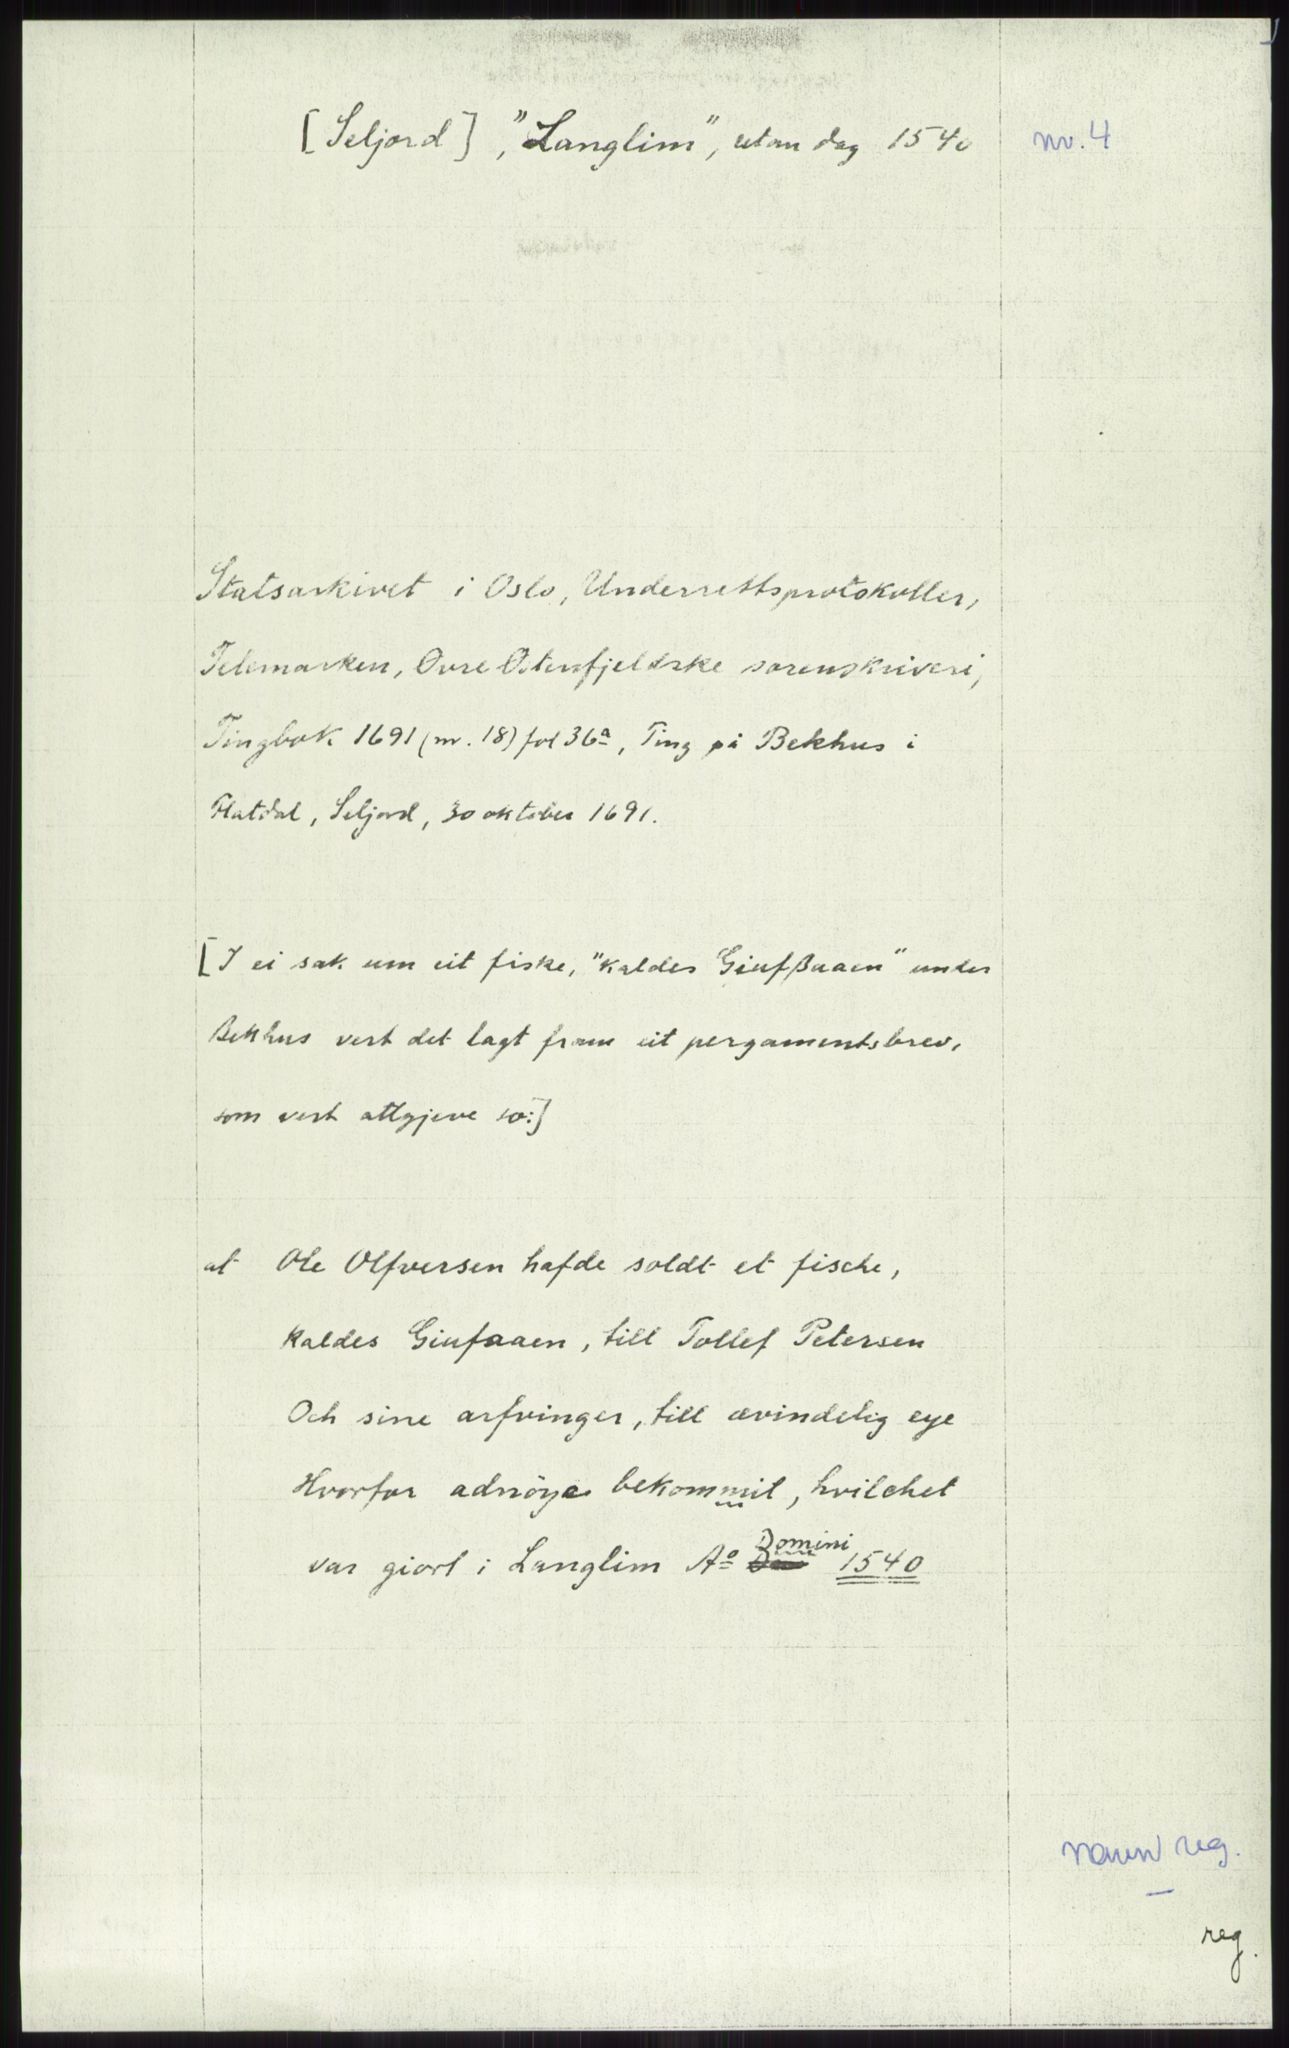 [Seljord], "Langlim", utan dag 1540 nr. 4
Statsarkivet i Oslo, Underrettsprotokoller,
Telemarken, Øvre Østenfjeldske sorenskriveri,
Tingbok 1691 (nr. 18) fol 36a, Ting på Bekhus i
Flatdal, Seljord, 30 oktober 1691.
[I ei sak um eit fiske, "kaldes Giufßaaen" under
Bekhus vert det lagt fram eit pergamentsbrev,
som vert attgjeve so:]
at Ole Olfversen hafde soldt et fische,
kaldes Giufaaen, till Tollef Petersen
Och sine arfvinger, till ævindelig eye
Hvorfor adnöye bekommit, hvilchet
var giort i Langlim Ao Domini 1540
navn reg.
reg.